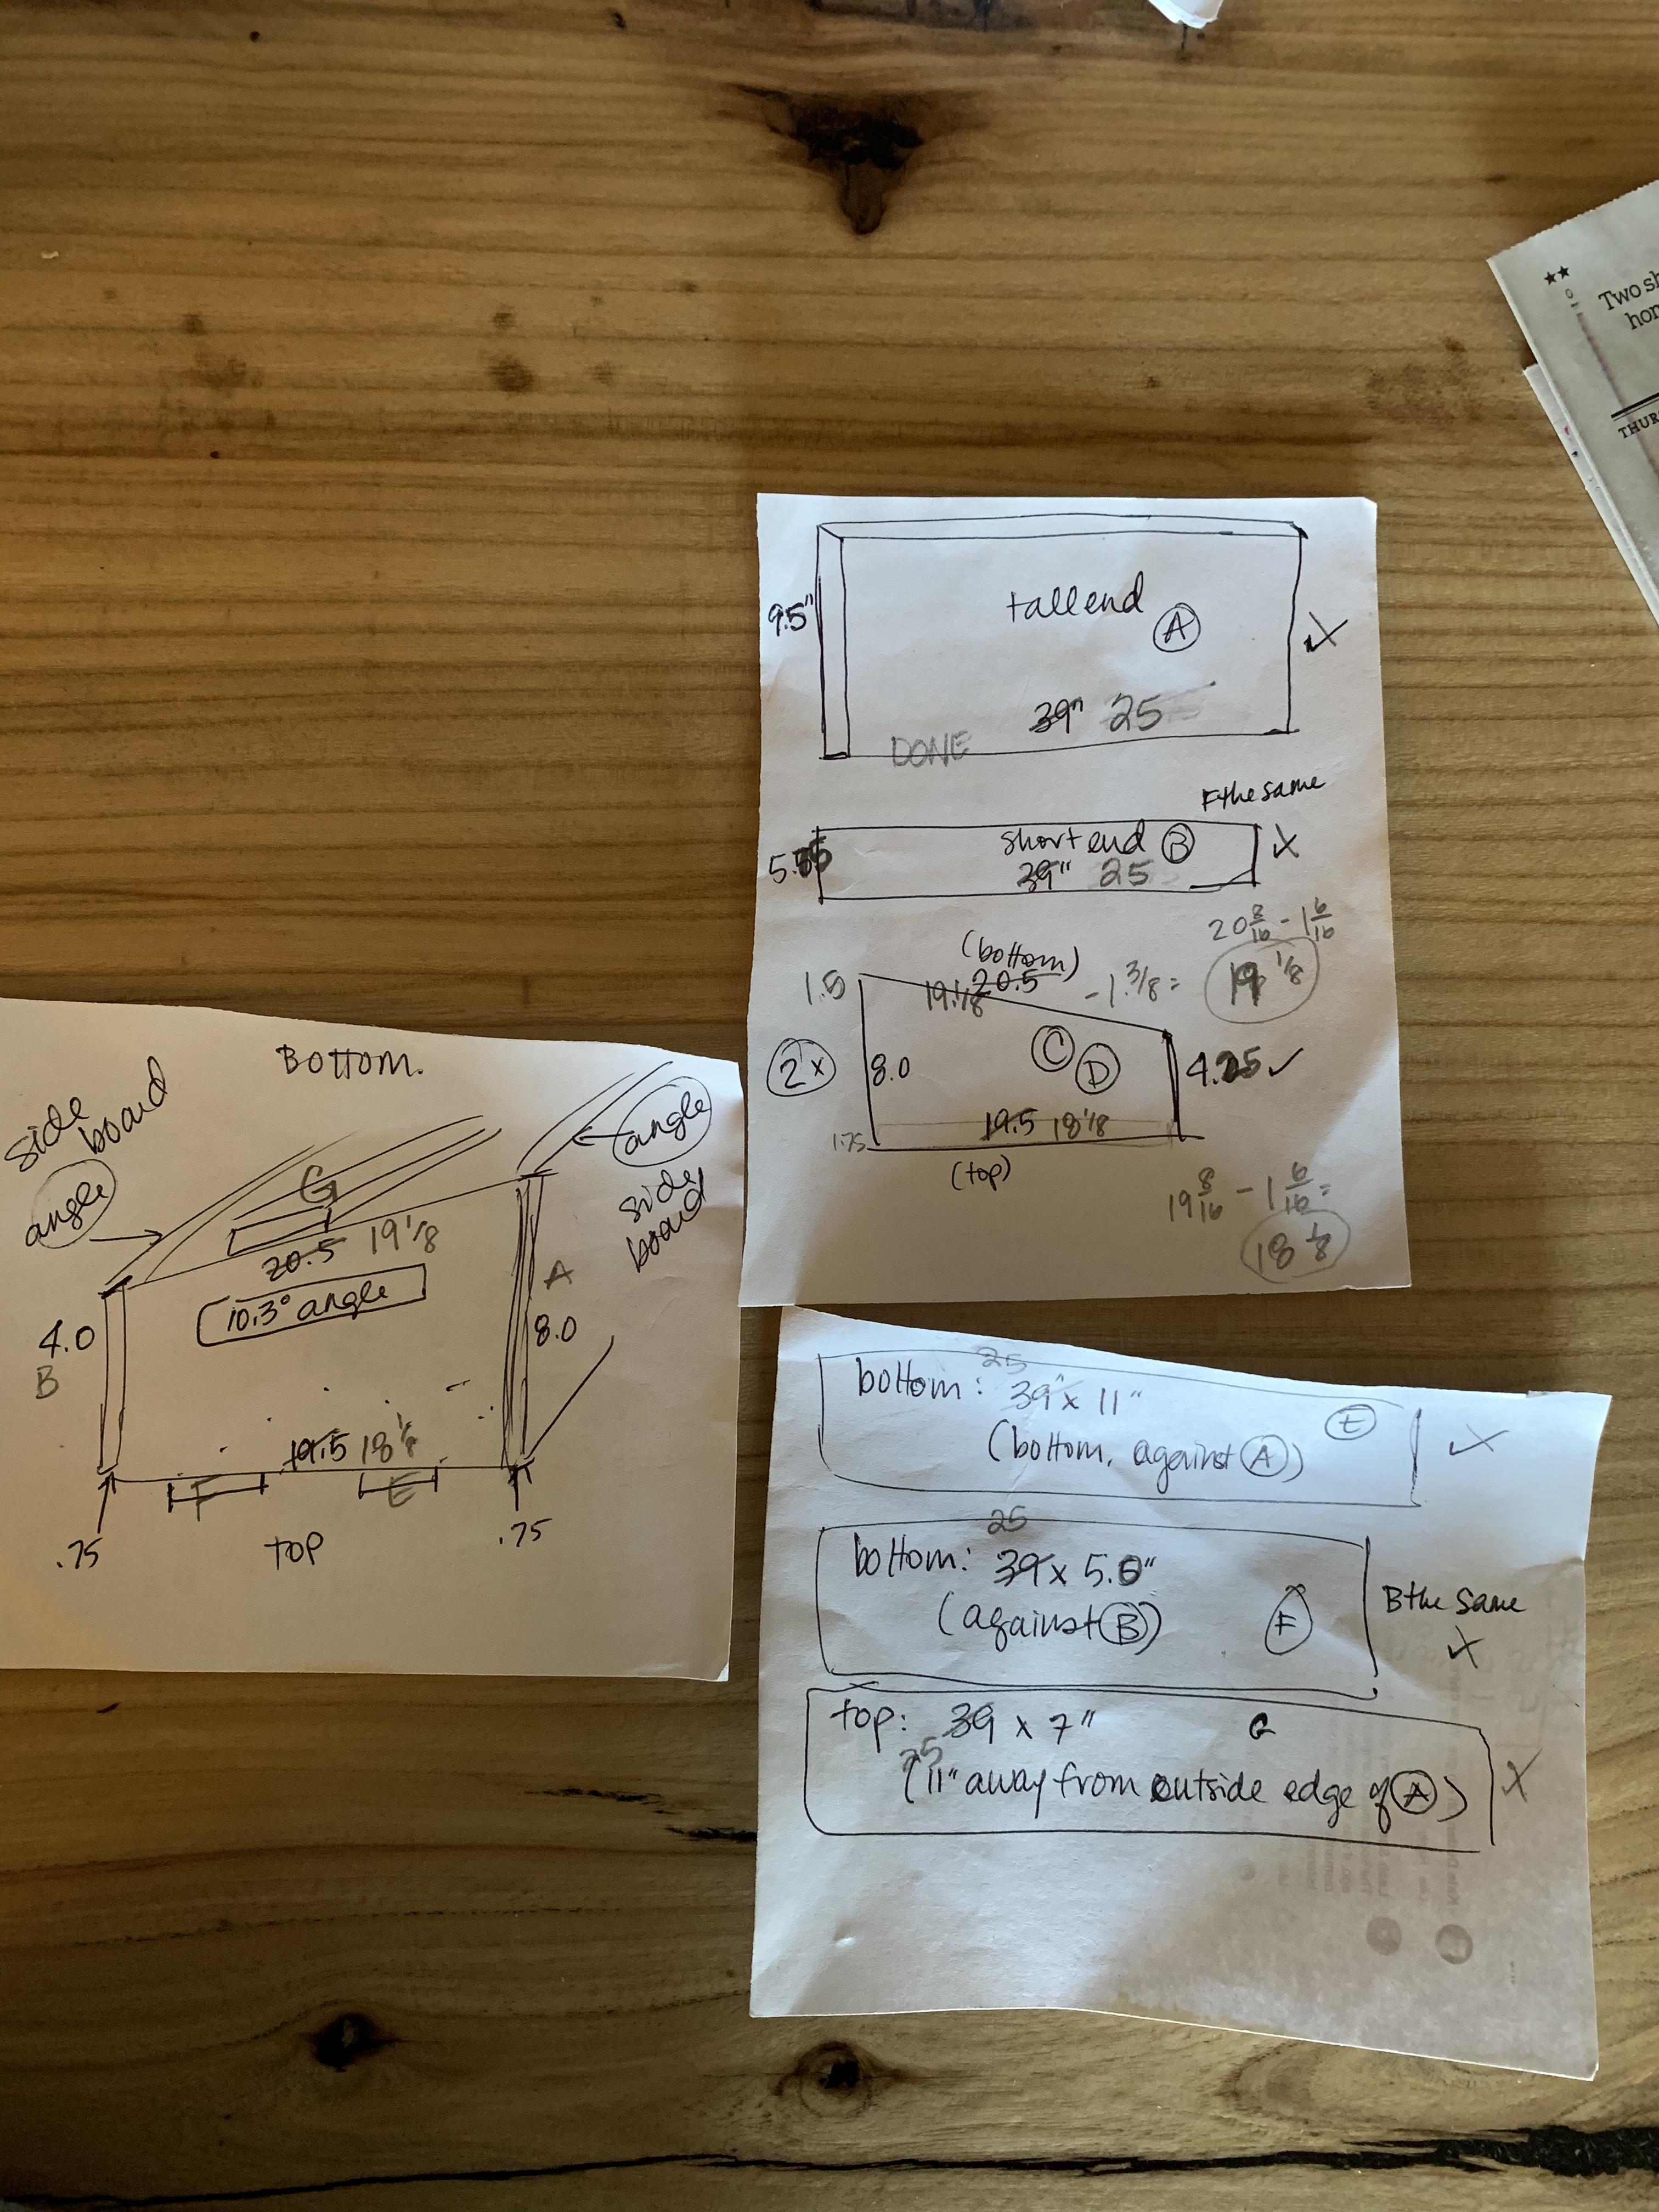 9.5"
tall end
A
39" 25
DONE
F the same
short end B
39" 25
20 8/16 - 1 6/16
(bottom)
1.5
20.5
19 1/8
- 1 3/8 =
19 1/8
2x
8.0
C D
4.25
19.5 18 1/8
1.75
(top)
19 8/16 - 1 6/16 =
18 1/8
Bottom.
side board
angle
angle
side board
G
20.5 19 1/8
10.3° angle
4.0
B
A
8.0
19.5 18 1/8
F
E
.75
TOP
.75
25
bottom: 39" x 11"
(bottom, against A)
E
25
bottom: 39 x 5.0"
(against B)
F
B the same
top: 39 x 7"
G
25
(11" away from outside edge of A)
★★
Two sh
hon
THUR